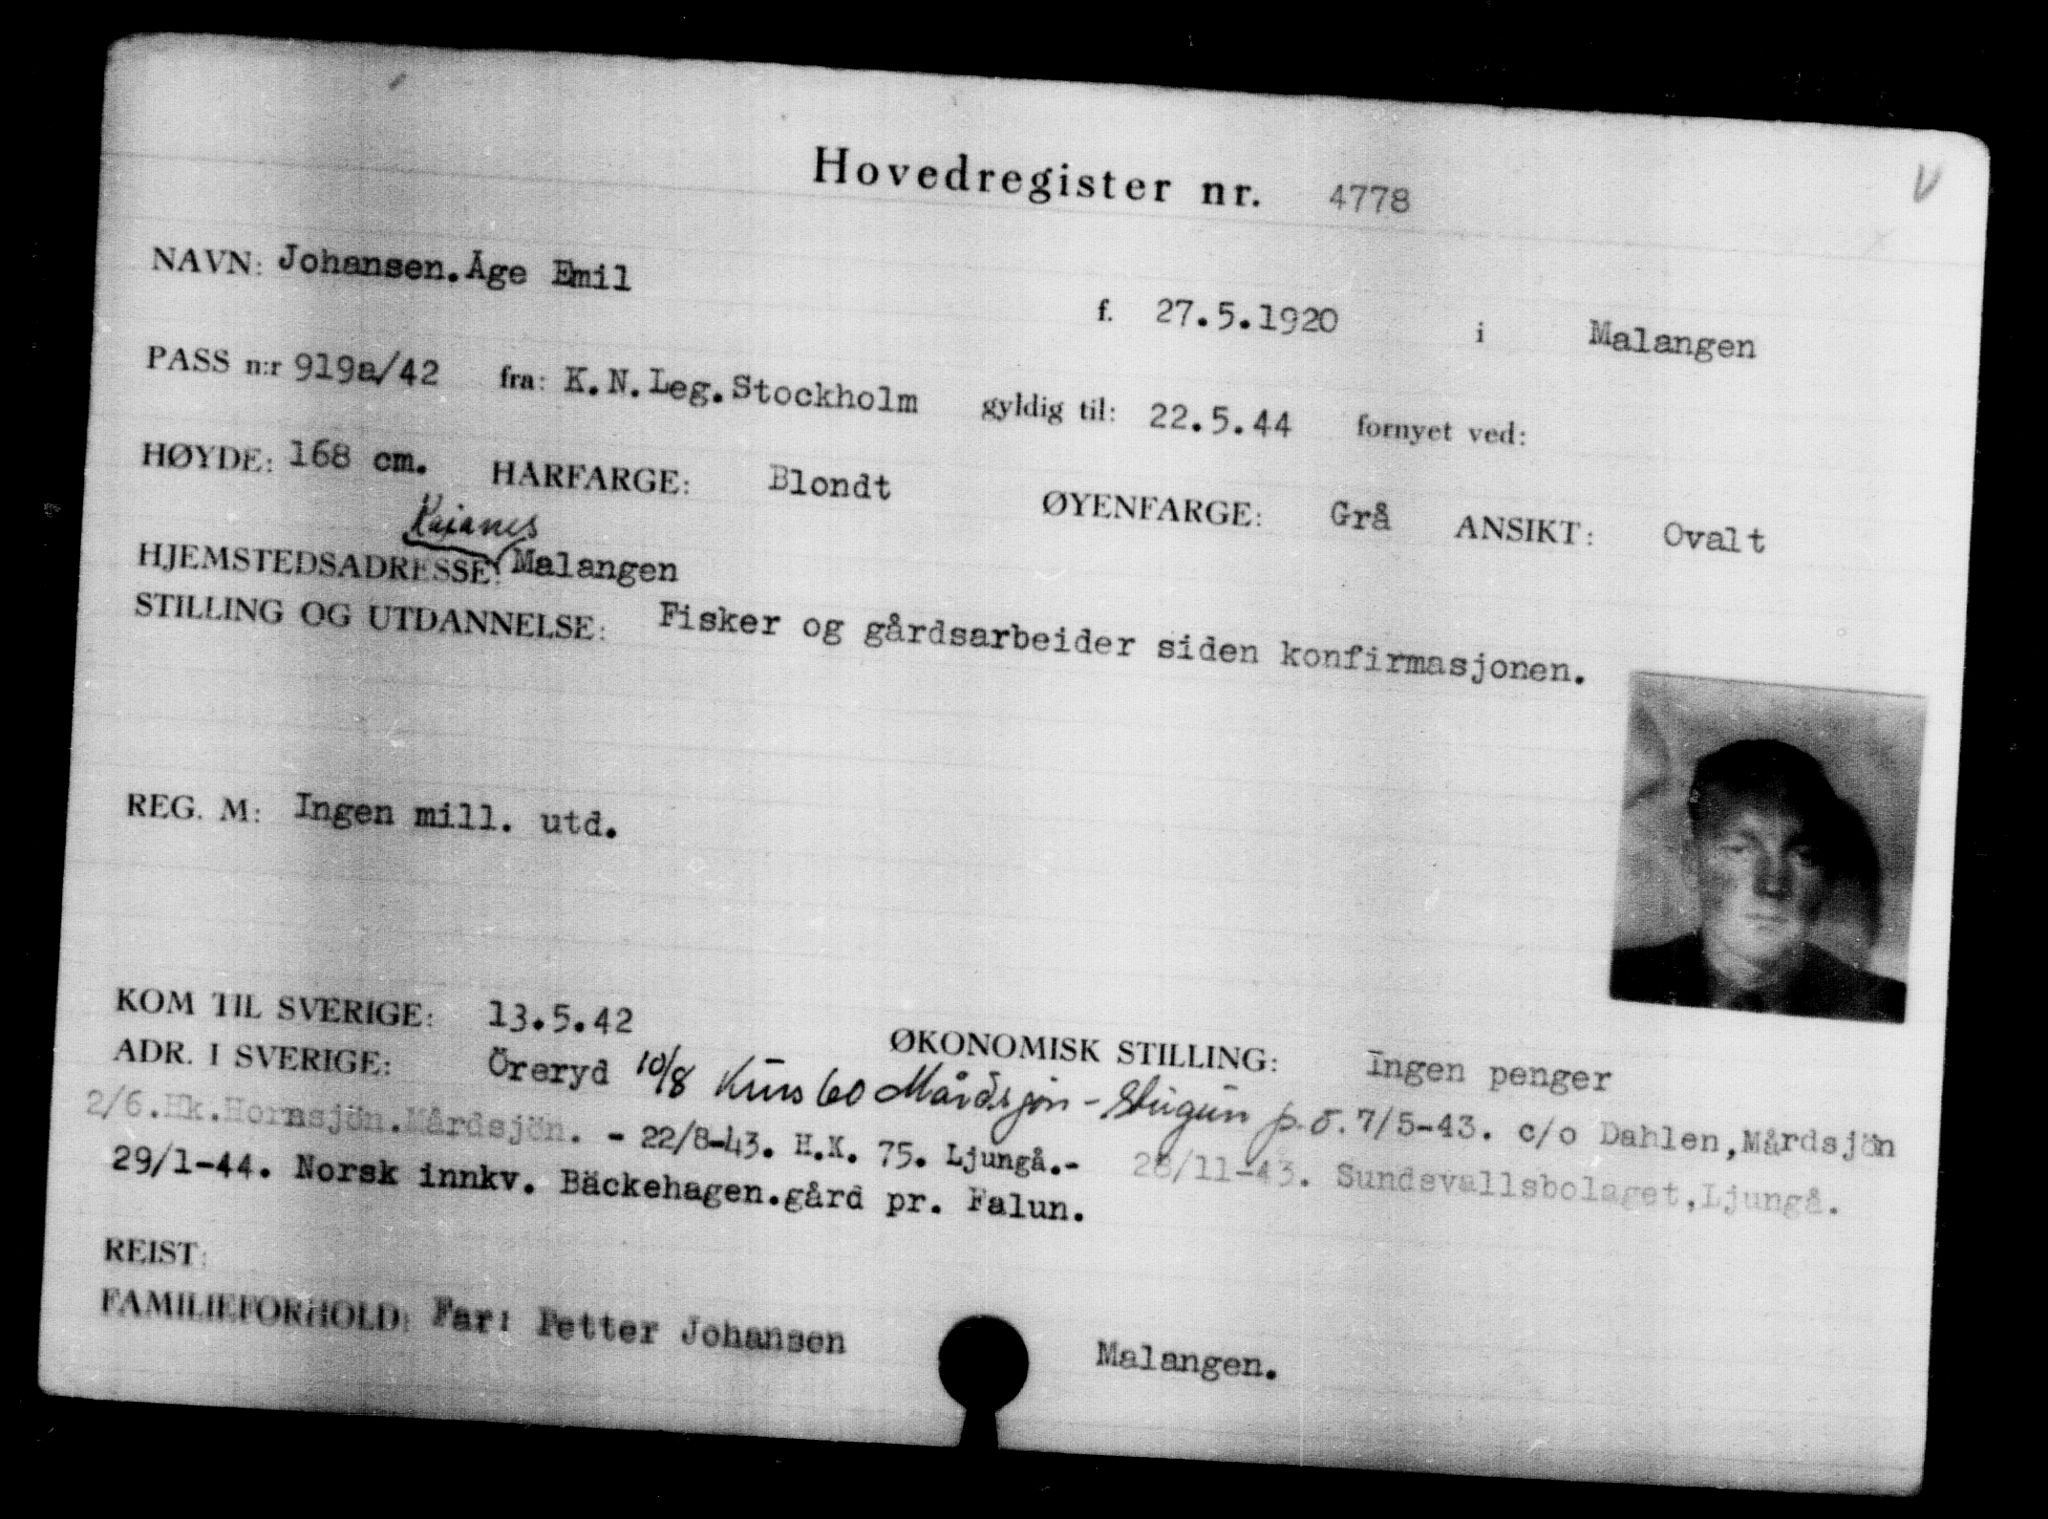 Hovedregister nr. 4778
NAVN: Johansen.Åge Emil f. 27.5.1920 i Malangen
PASS n:r 919a/42 fra: K.N.Leg.Stockholm gyldig til: 22.5.44 fornyet ved:
HØYDE: 168 cm. HÅRFARGE: Blondt ØYENFARGE: Grå ANSIKT: Ovalt
HJEMSTEDSADRESSE: Malangen
STILLING OG UTDANNELSE: Fisker og gårdsarbeider siden konfirmasjonen.
REG. M: Ingen mill. utd.
KOM TIL SVERIGE: 13.5.42 ØKONOMISK STILLING: Ingen penger
ADR. I SVERIGE: Öreryd 10/8 60 Mårdsjön - Stugun p.ö. 7/5-43. c/o Dahlen,Mårdsjön
2/6.Hk.Hornsjön.Mårdsjön. - 22/8-43. H.K. 75. Ljungå.- 28/11-43. Sundsvallsbolaget,Ljungå.
29/1-44. Norsk innkv. Bäckehagen.gård pr. Falun.
REIST:
FAMILIEFORHOLD: Far: Petter Johansen Malangen.